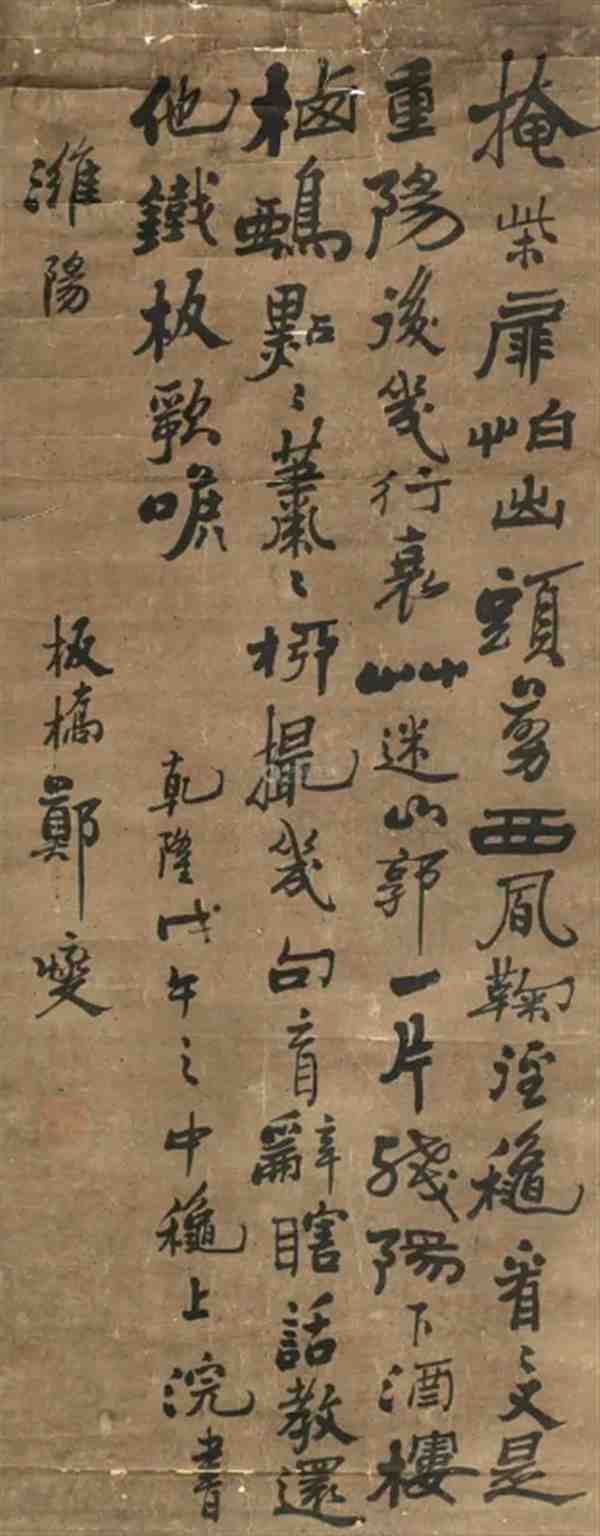 掩柴扉怕出頭剪西風鞠徑穐看〻又是
重陽後幾行衰艸迷山郭一片殘陽下酒樓
栖鵶點〻蕭〻桺撮幾句盲辭瞎話教還
他鐵板歌喉
乾隆戊午之中穐上浣書
濰陽
板橋鄭燮